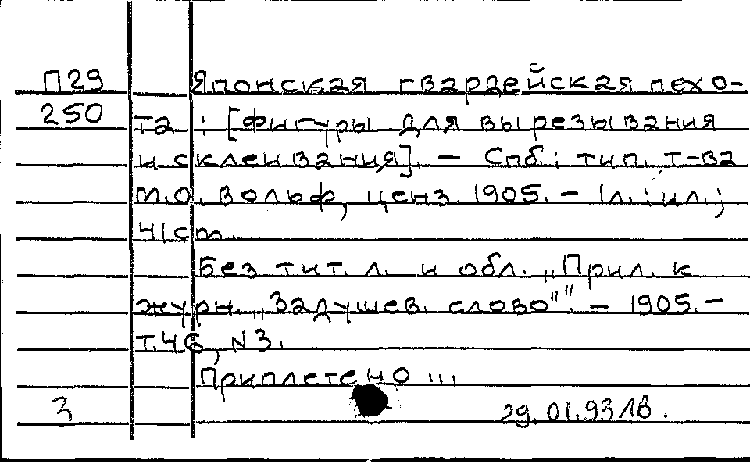 П29 Японская гвардейская пехо-
250 та : [фигуры для вырезывания
и склеивания]. - Спб : тип. т-ва
М.О. Вольф, ценз. 1905. - 1 л. : ил. ;
41 см.
Без тит. л. и обл. „Прил. к
журн. „Задушев. слово"". - 1905. -
Т.46, N3.
Приплетено ...
3 29.01.93